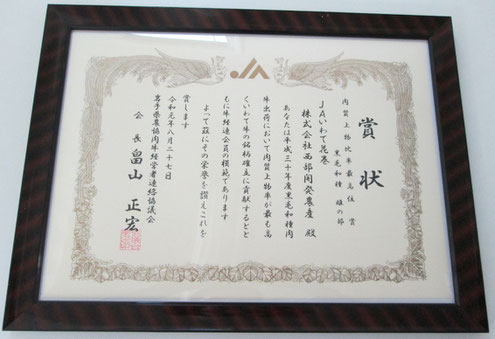 JA
賞状
肉質上物比率最高位賞
黒毛和種 雄の部
JAいわて花巻
株式会社西部開発農産 殿
あなたは平成三十年度黒毛和種肉
牛出荷において肉質上物率が最も高
くいわて牛の銘柄確立に貢献するとと
もに牛経連会員の模範であります
よって茲にその栄誉を讃えこれを
賞します
令和元年八月二十七日
岩手県農協肉牛経営者連絡協議会
会長 畠山 正宏